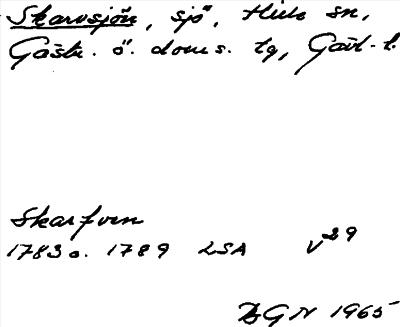 Skarvsjön, sjö, Hille sn,
Gästr. ö. doms. tg, Gävl. l.
Skarfven
1783 o. 1789 LSA V29
BGN 1965